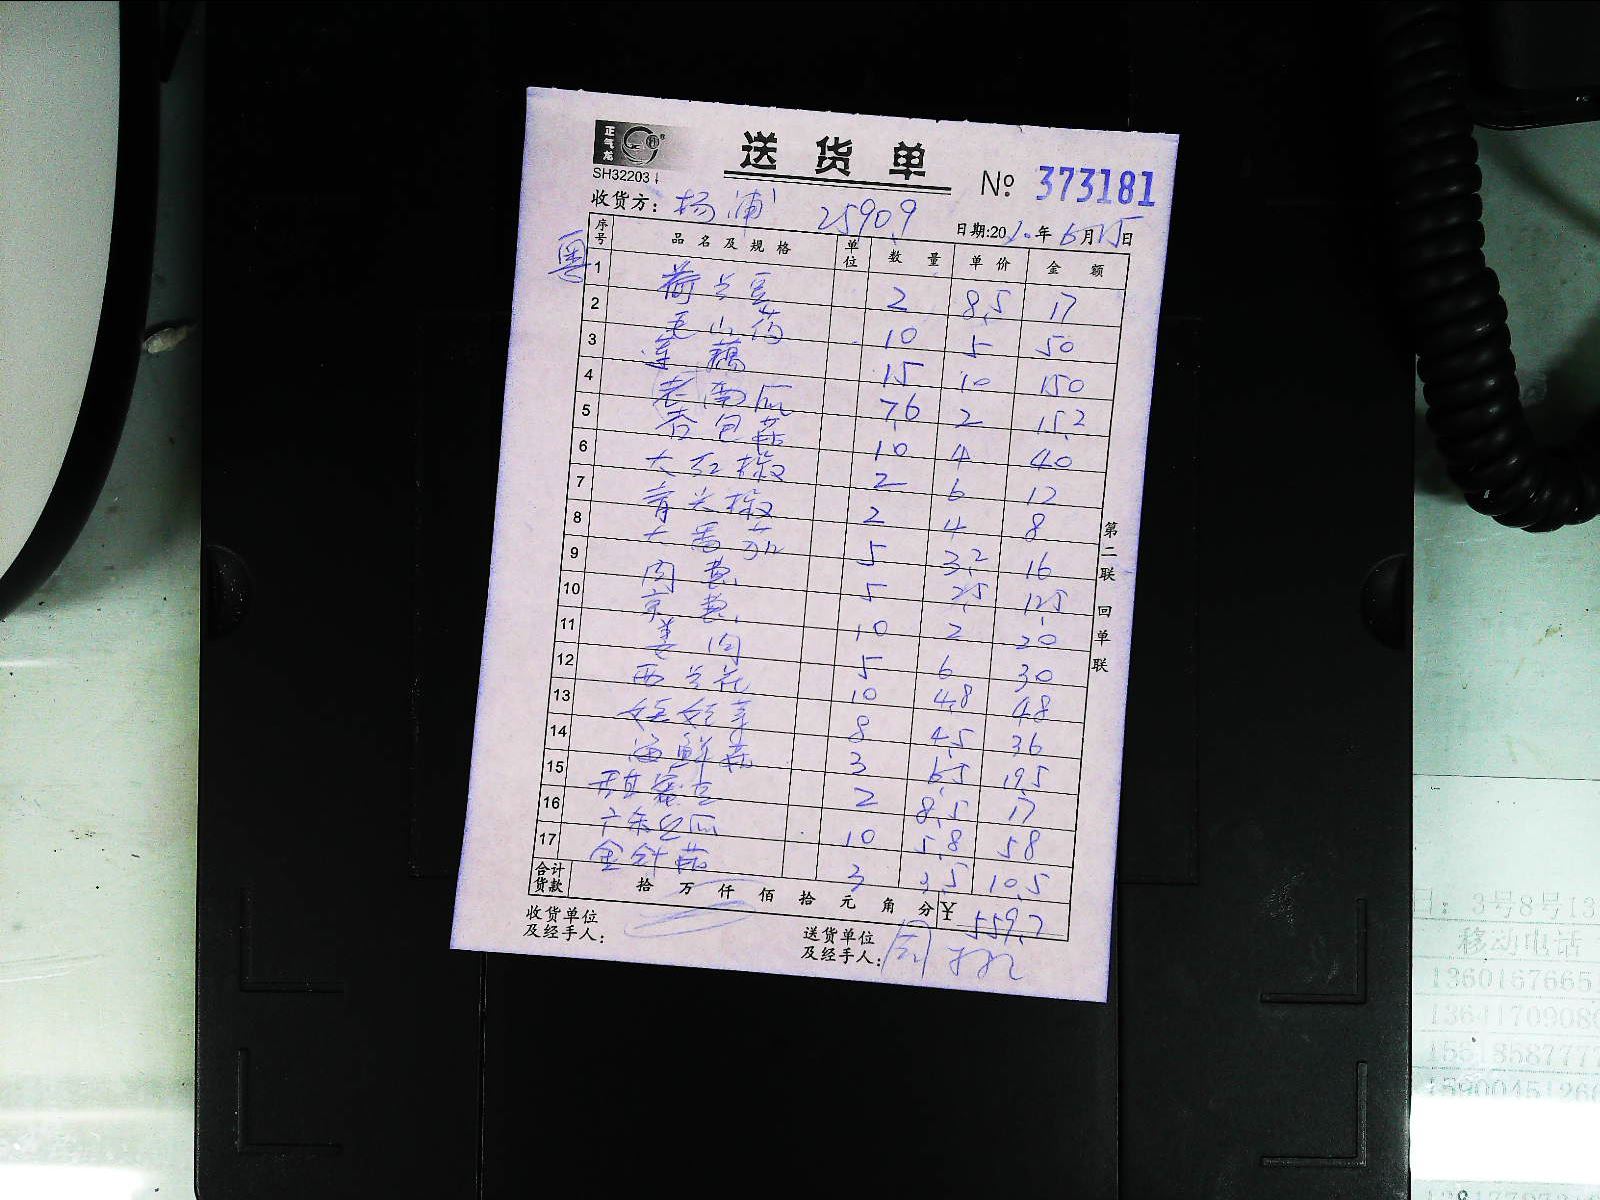 正气龙
送货单
SH32203
№ 373181
收货方: 杨浦 25909
日期:2010年6月15日
粤
序号 品名及规格 单位 数量 单价 金额
1 荷兰豆 2 8.5 17
2 毛山药 10 5 50
3 莲藕 15 10 150
4 老南瓜 7.6 2 15.2
5 杏包菇 10 4 40
6 大红椒 2 6 12
7 青尖椒 2 4 8
8 大番茄 5 3.2 16
9 肉葱 5 2.5 12.5
10 京葱 10 2 20
11 姜肉 5 6 30
12 西兰花 10 4.8 48
13 娃娃菜 8 4.5 36
14 海鲜菇 3 6.5 19.5
15 2 8.5 17
16 10 5.8 58
17 金针菇 3 3.5 10.5
合计货款 拾 万 仟 佰 拾 元 角 分 ¥ 559.7
收货单位及经手人:
送货单位及经手人: 周
第二联 回单联
日: 3号8号13
移动电话
1360167665
1364170908